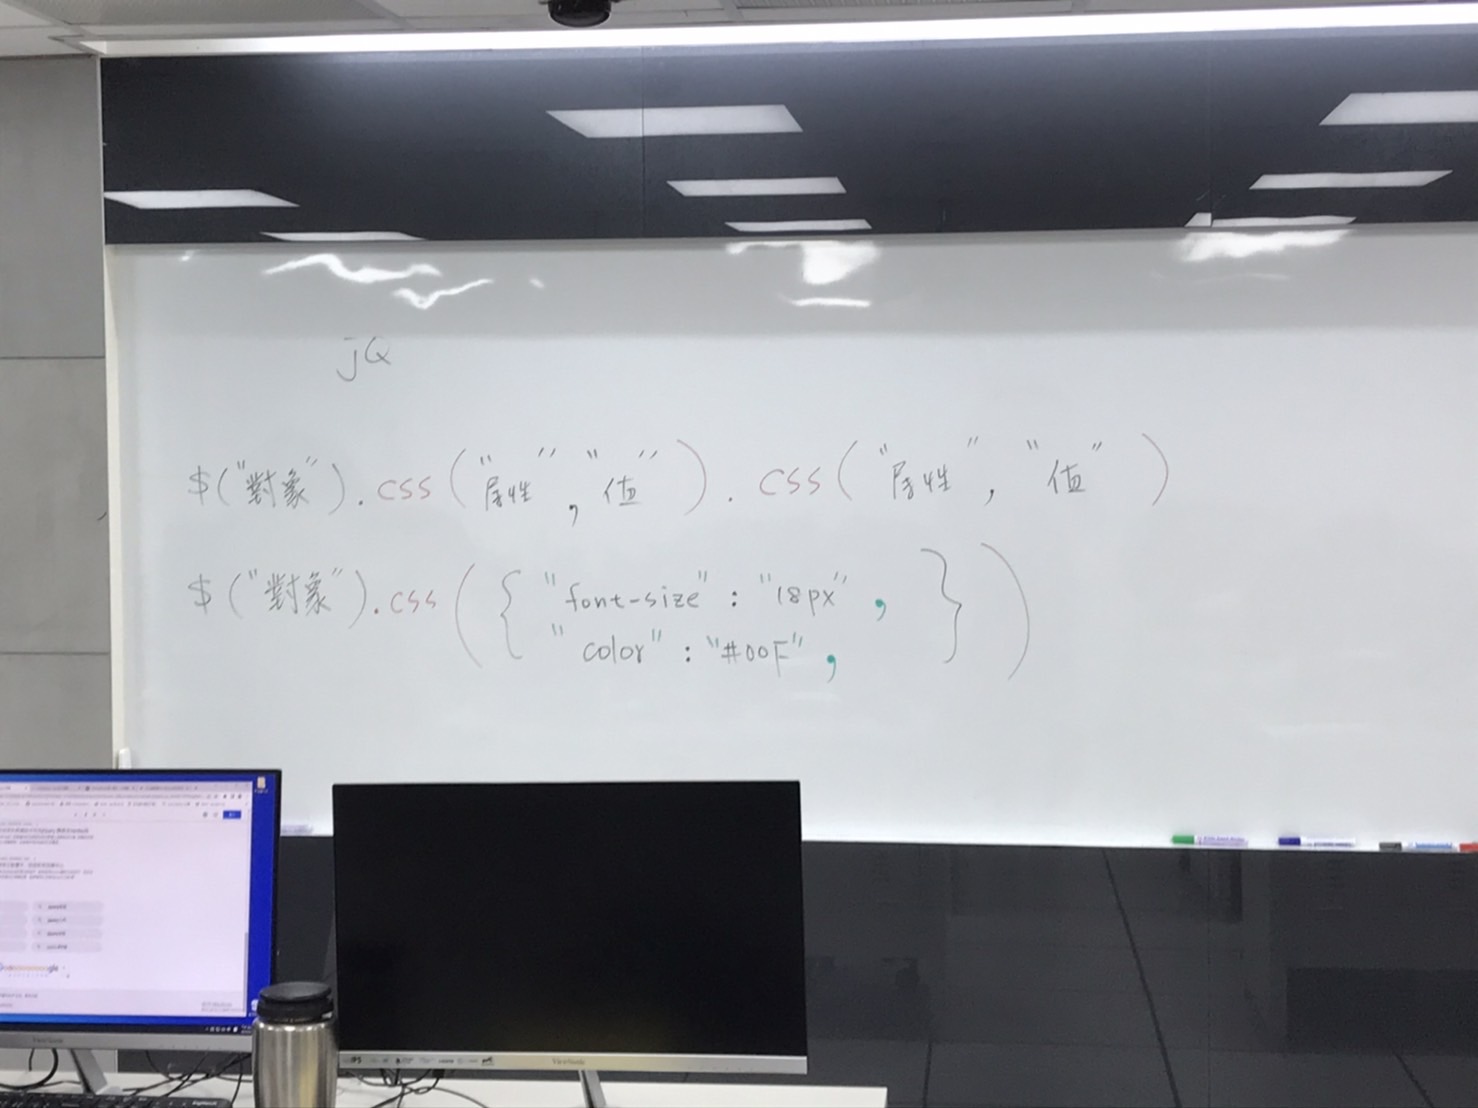 jQ
$("對象").css("屬性","值").css("屬性","值")
$("對象").css({"font-size":"18px",
"color":"#00F",})
ViewSonic